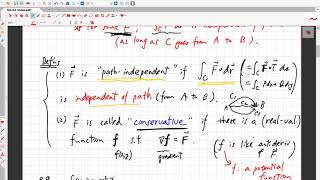 (as long as C goes from A to B).
Defns
(1) F is "path-independent" if ∫_C F·dr (= ∫_C F·T ds
= ∫_C Pdx+Qdy)
is independent of path (from A to B). A C₁ C₂ B
(2) F is called "conservative" if there is a (real-val)
function f s.t. ∇f = F. (f is like antideriv
f(x,y) gradient of F
f: a potential
function